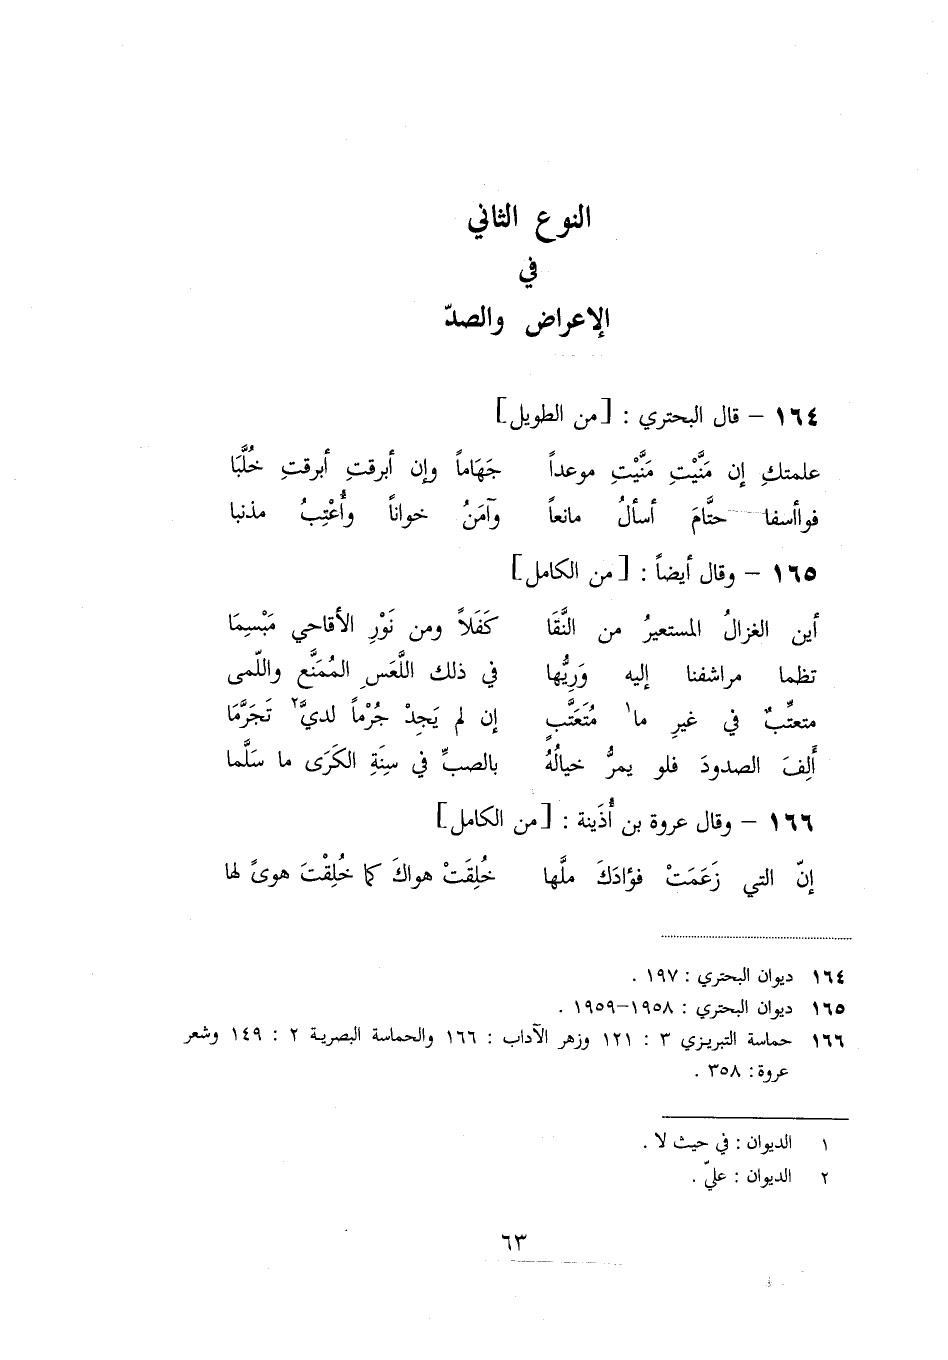 النوع الثاني
في
الإعراض والصدّ
١٦٤ – قال البحتري : [من الطويل]
علمتكِ إن مَنَّيْتِ مَنَّيْتِ موعداً جَهَاماً وإن أبرقتِ أبرقتِ خُلَّبَا
فواأسفا حتَّامَ أسألُ مانعاً وآمَنُ خواناً وأُعْتِبُ مذنبا
١٦٥ – وقال أيضاً : [من الكامل]
أين الغزالُ المستعيرُ من النَّقَا كَفَلاً ومن نَوْرِ الأقاحي مَبْسِمَا
تظما مراشفنا إليه وَرِيُّها في ذلك اللَّعَسِ المُمَنَّع واللّمى
متعتِّبٌ في غيرِ ما١ مُتَعَتَّبٍ إن لم يَجِدْ جُرْماً لديَّ٢ تَجَرَّمَا
أَلِفَ الصدودَ فلو يمرُّ خيالُهُ بالصبِّ في سِنَةِ الكَرَى ما سَلَّما
١٦٦ – وقال عروة بن أُذَينة : [من الكامل]
إنّ التي زَعَمَتْ فؤادَكَ ملَّها خُلِقَتْ هواكَ كما خُلِقْتَ هوىً لها
١٦٤ ديوان البحتري : ١٩٧ .
١٦٥ ديوان البحتري : ١٩٥٨–١٩٥٩ .
١٦٦ حماسة التبريزي ٣ : ١٢١ وزهر الآداب : ١٦٦ والحماسة البصرية ٢ : ١٤٩ وشعر
عروة : ٣٥٨ .
١ الديوان : في حيث لا .
٢ الديوان : عليّ .
٦٣